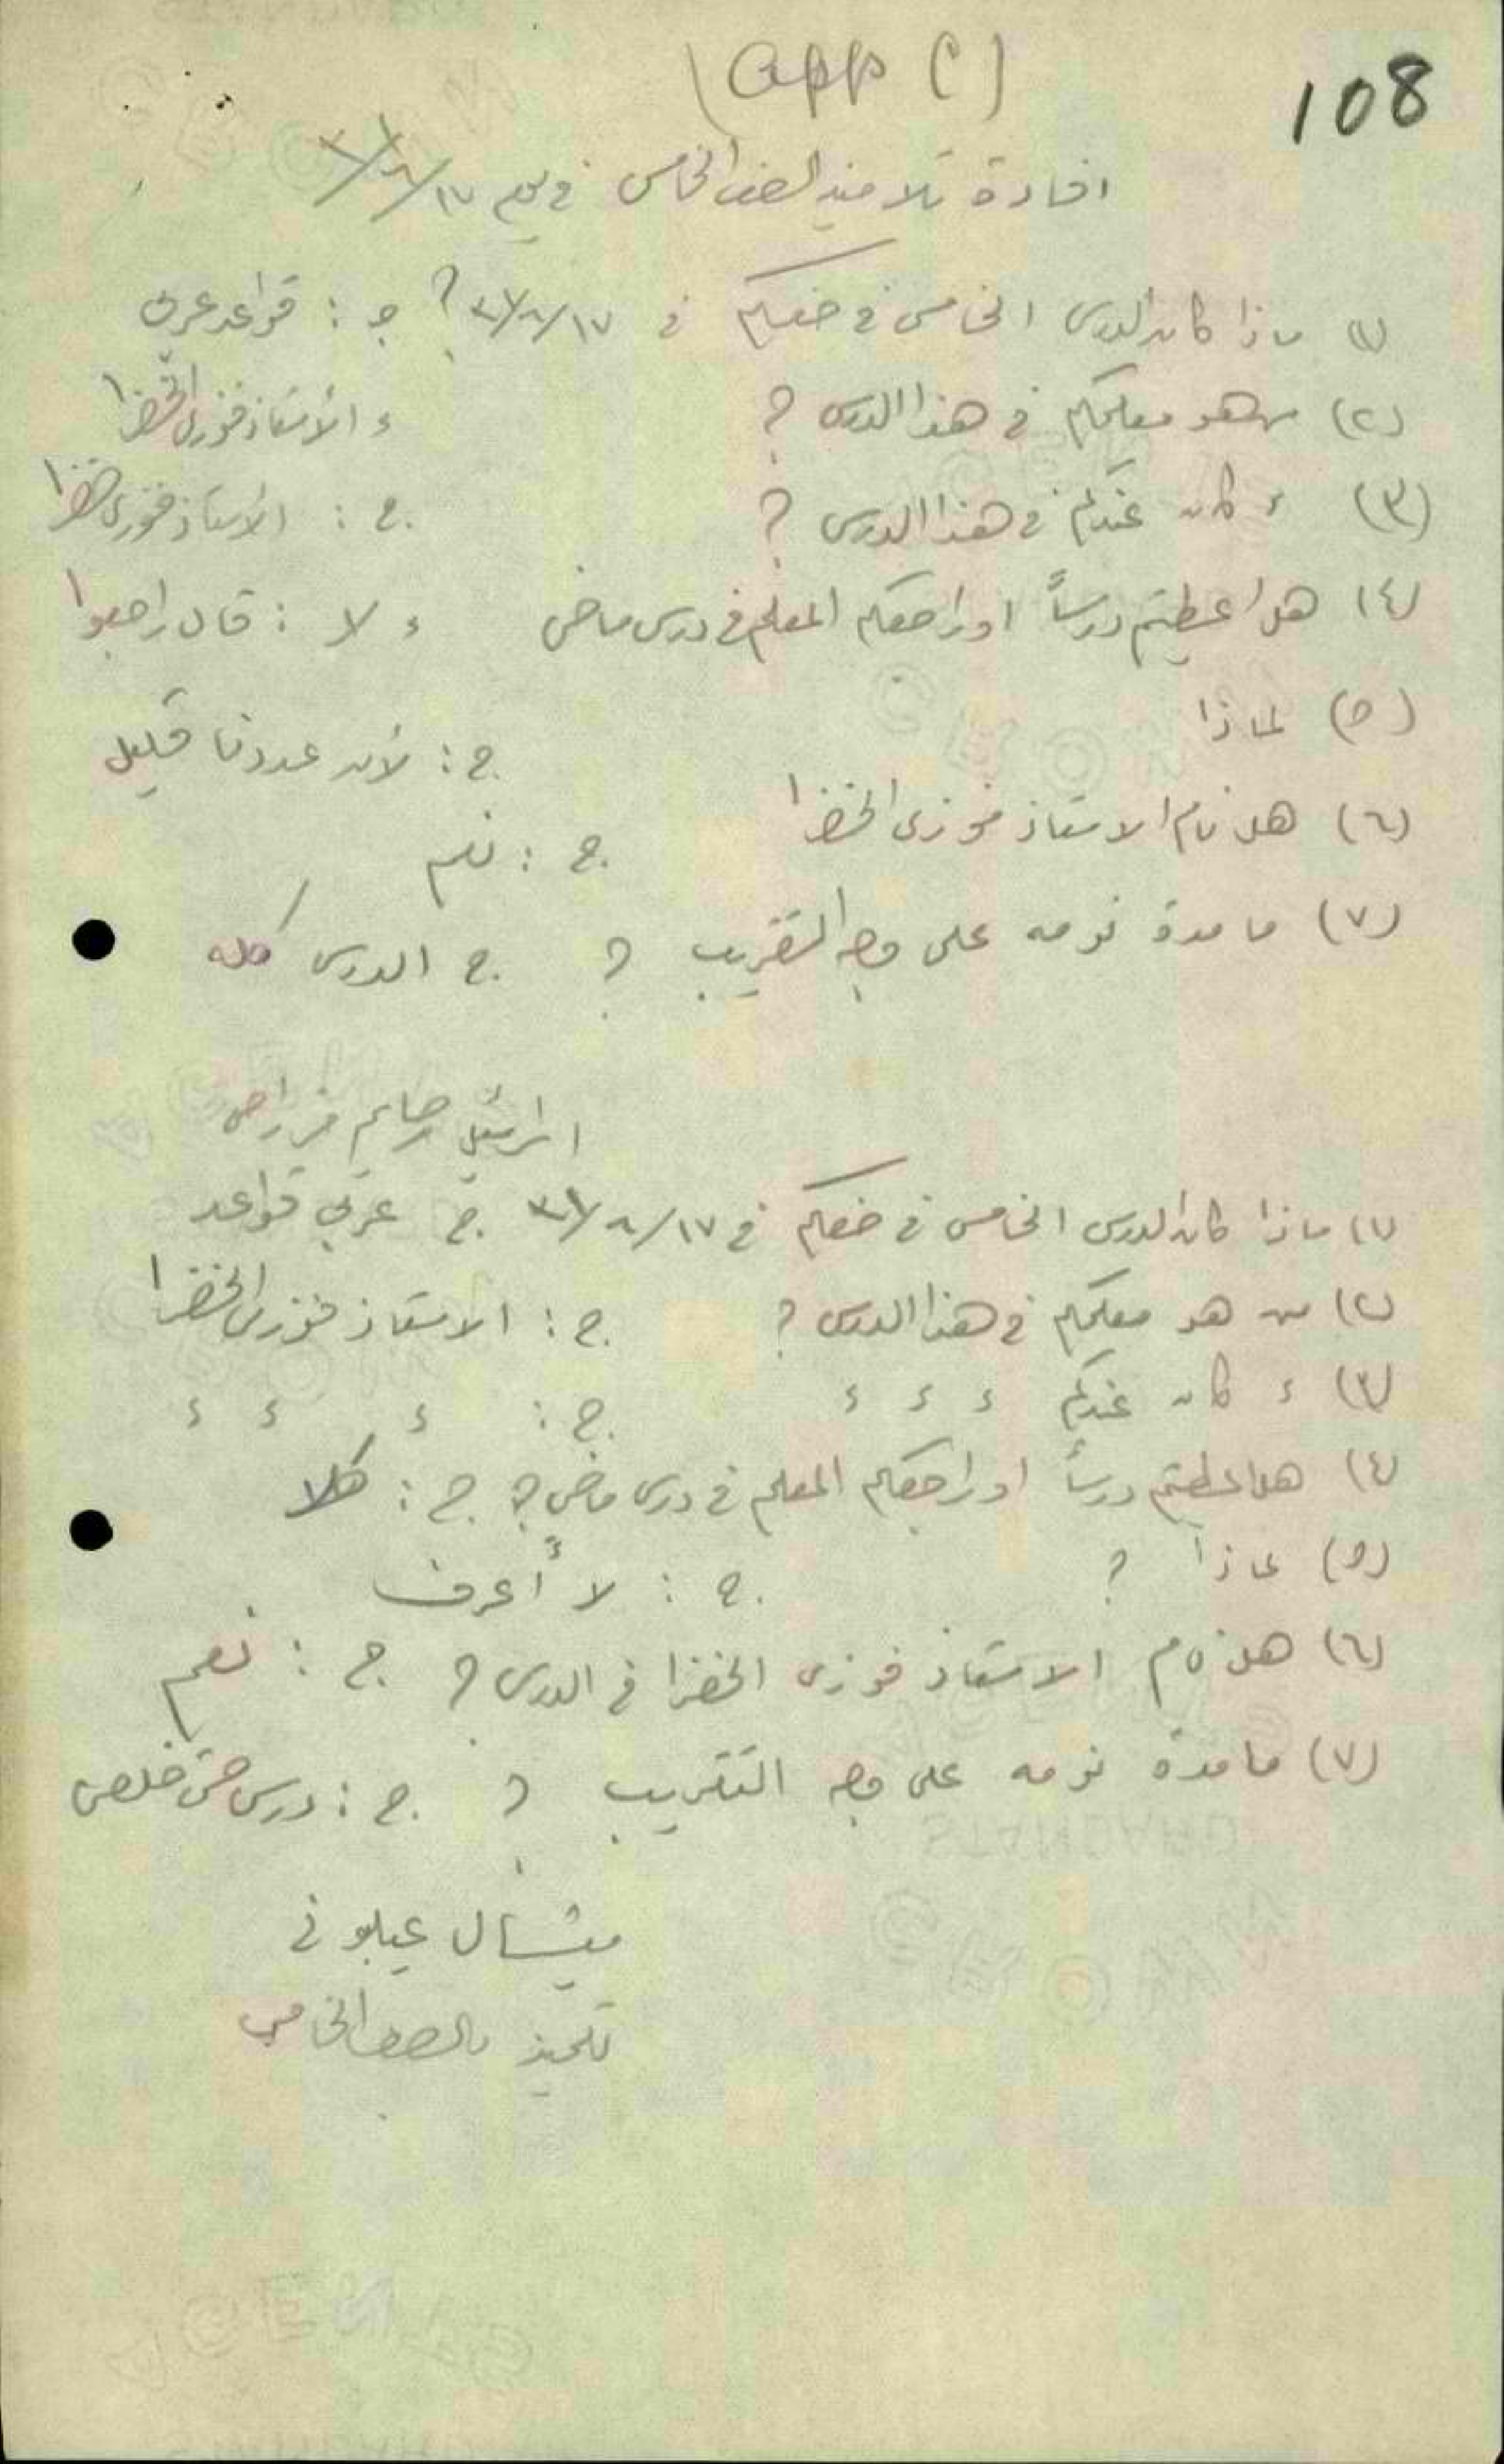 108
(app C)
افادة تلاميذ الصف الخامس في يوم ١٧/٨/
(١) ماذا كان الدرس الخامس في صفكم في ١٧/٨/ ؟ ج : قواعد عربي
(٢) من هو معلمكم في هذا الدرس ؟ ء الأستاذ فوزي الخضرا
(٣) ء كان عندكم في هذا الدرس ؟ ج : الأستاذ فوزي خضرا
(٤) هل اعطيتم درساً او راجعكم المعلم في درس ماضي ء لا : قال راجعوا
(٥) لماذا ج : لأن عددنا قليل
(٦) هل نام الاستاذ فوزي الخضرا ج : نعم
(٧) ما مدة نومه على وجه التقريب ؟ ج الدرس كله
(١) ماذا كان الدرس الخامس في صفكم في ١٧/٨/ ج عربي قواعد
(٢) من هو معلمكم في هذا الدرس ؟ ج : الاستاذ فوزي الخضرا
(٣) ء كان عندكم ء ء ء ج : ء ء ء
(٤) هل اعطيتم درساً او راجعكم المعلم في درس ماضي ؟ ج : كلا
(٥) لماذا ؟ ج : لا أعرف
(٦) هل نام الاستاذ فوزي الخضرا في الدرس ؟ ج : نعم
(٧) ما مدة نومه على وجه التقريب ؟ ج : درس حتى خلص
ميشال عيلبوني
تلميذ بالصف الخامس